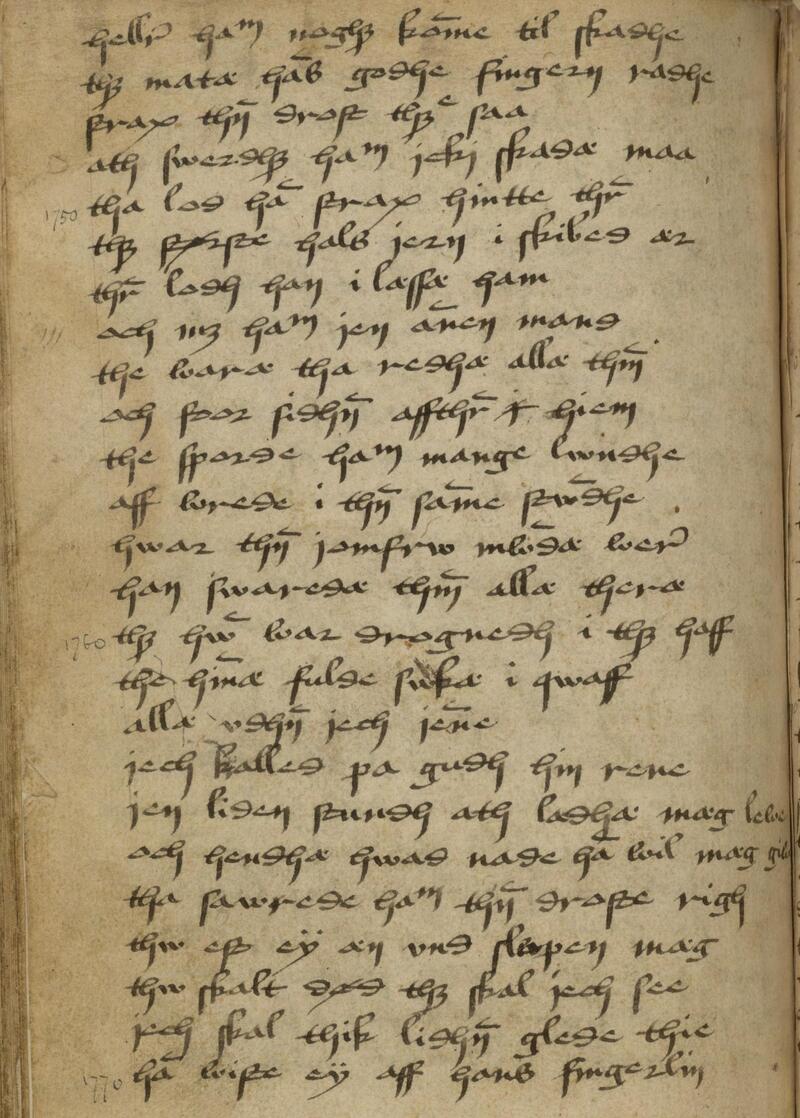 hellr ham nogh komme til skadhe
thz matæ hans godhe fingern radhe
strax thn drost thz saa
ath swerdhz ham jcki skadæ maa
1750 tha lod han strax hintte thr
thz største hals jern i skibed ær
thr lodh han i læssæ ham
och mz ham jen annen mand
the waræ tha redhæ allæ thm
och foor sidhn affthr hiem
the sporde ham mange lwndhe
aff wrede i thn samme stwndhe
hwar thn jomfrw wer
han swaredæ thm allæ theræ
1760 thz hwn war drognedh i thz haff
the hinnæ fulde i qwaff
allæ vdhn jech jenne
jech kalled pa gudh hin rene
jen liden stundh ath ladhæ mæg leve
och hendhæ hwad nade han wil mæg
tha sawrede ham thn droste righ
thw est ey æn vnd slwpen mæg
thw skalt død thz skal jech see
jech skal thik lidhn glede thie
1770 han wiste ey aff hans fingerlin